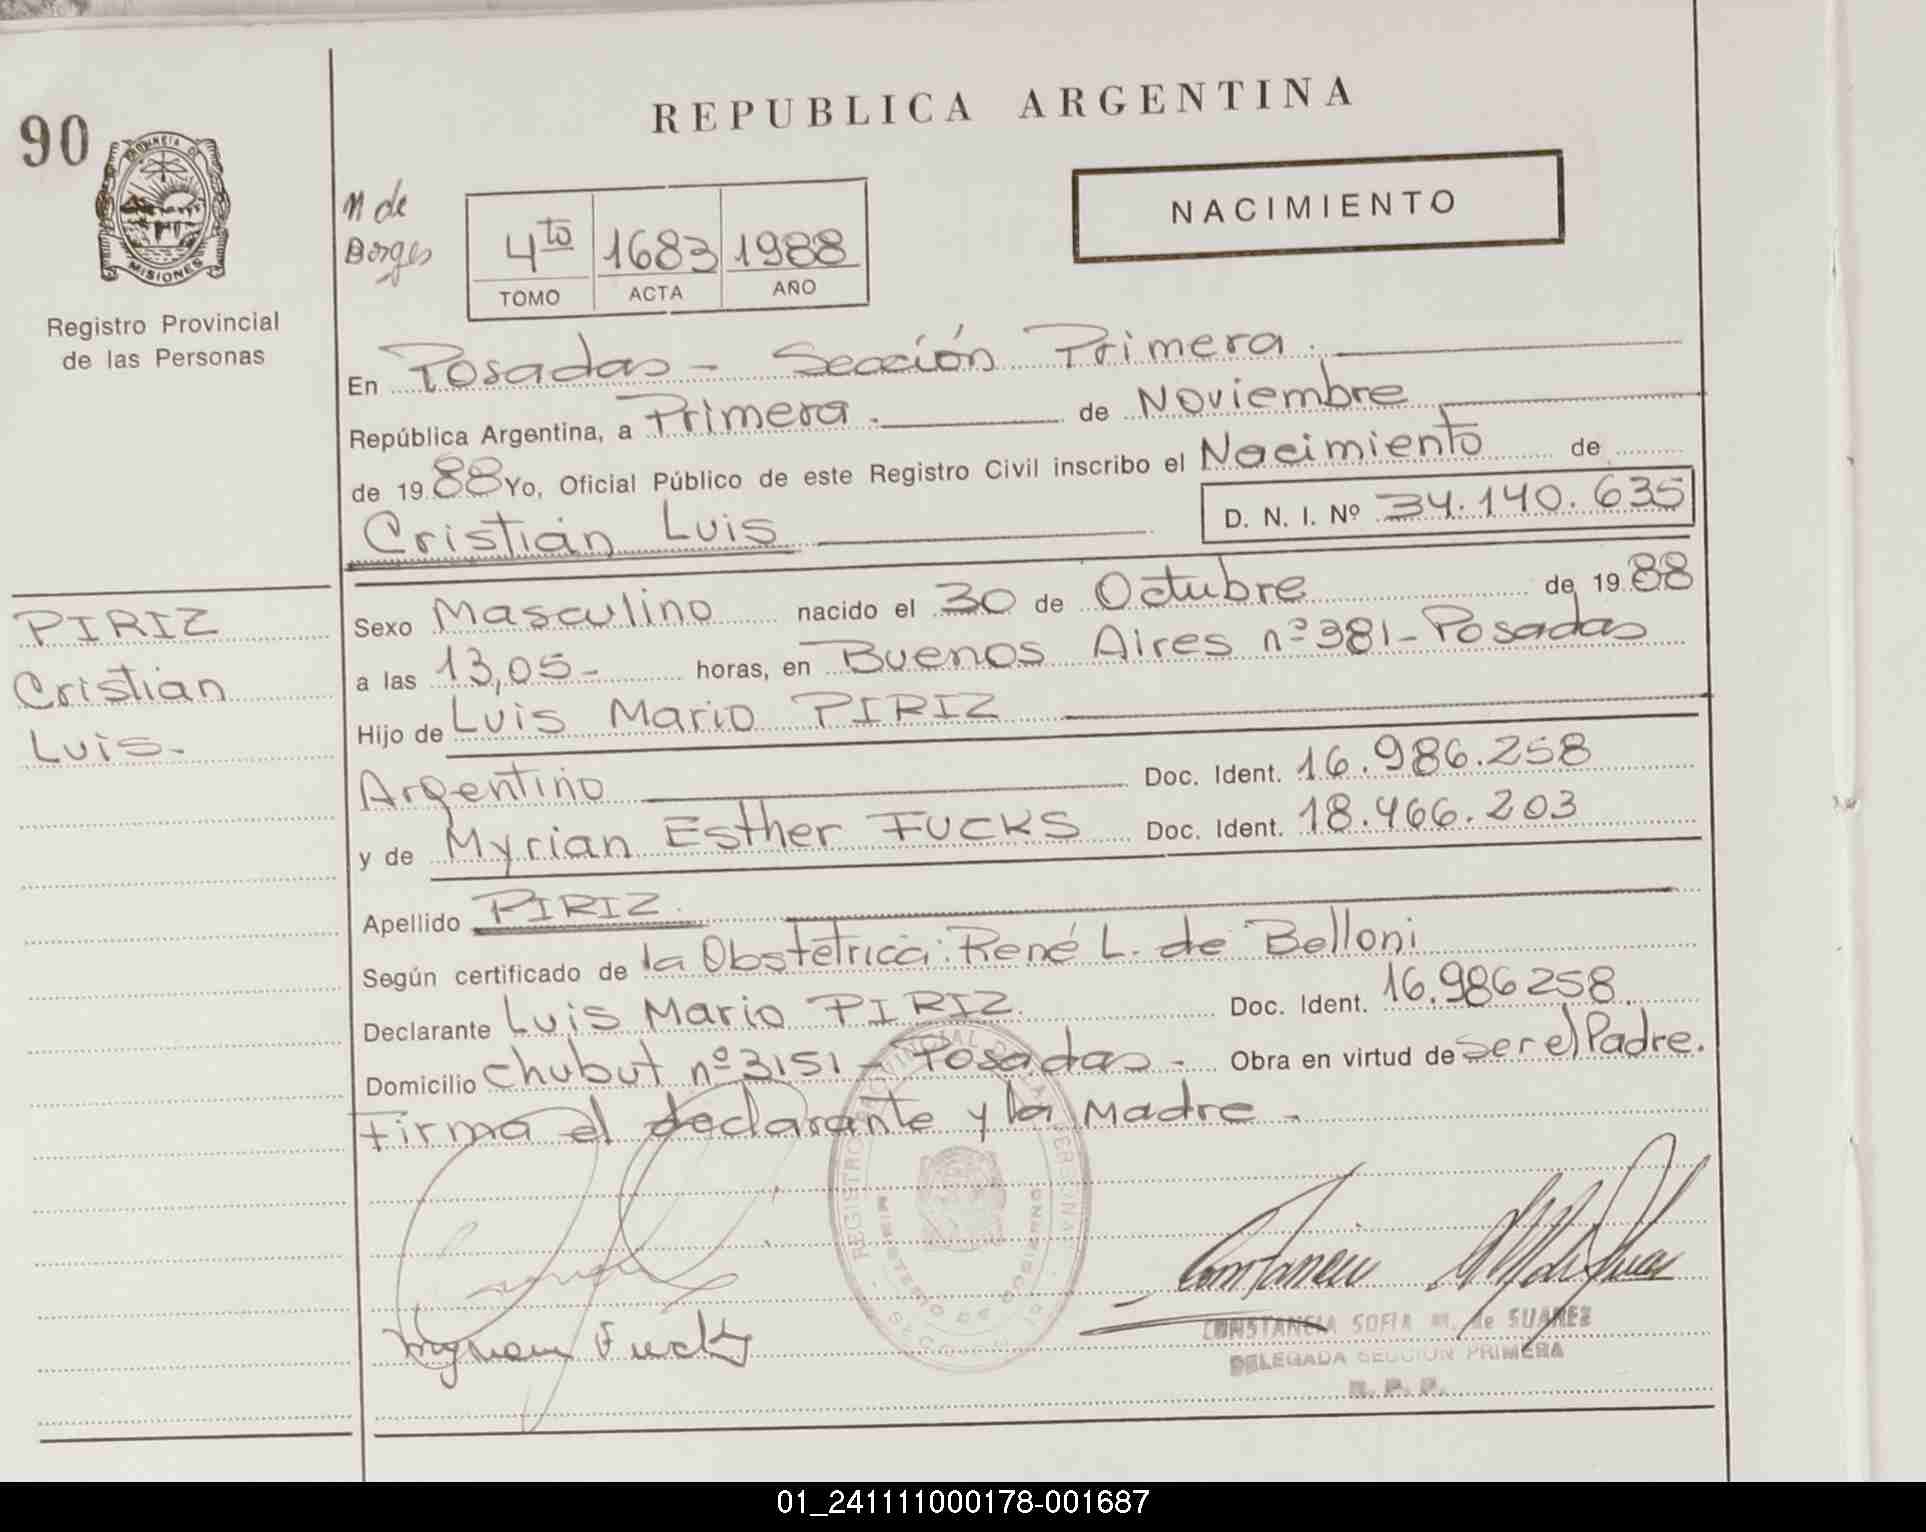 REPUBLICA ARGENTINA
90
PROVINCIA DE
MISIONES
Registro Provincial
de las Personas
N de
Borges
4to 1683 1988
TOMO ACTA AÑO
NACIMIENTO
En Posadas - Sección Primera.
República Argentina, a Primera. de Noviembre
de 1988 Yo, Oficial Público de este Registro Civil inscribo el Nacimiento de
Cristian Luis D. N. I. Nº 34.140.635
PIRIZ
Cristian
Luis.-
Sexo Masculino nacido el 30 de Octubre de 1988
a las 13,05- horas, en Buenos Aires nº 381 - Posadas
Hijo de Luis Mario PIRIZ
Argentino Doc. Ident. 16.986.258
y de Myrian Esther FUCKS Doc. Ident. 18.466.203
Apellido PIRIZ.
Según certificado de la Obstetrica: René L. de Belloni
Declarante Luis Mario PIRIZ. Doc. Ident. 16.986258.
Domicilio Chubut nº 3151 - Posadas - Obra en virtud de ser el Padre.
Firma el declarante y la Madre -
REGISTRO PROVINCIAL DE LAS PERSONAS
MINISTERIO DE GOBIERNO
Fucks
CONSTANCIA SOFIA M. de SUAREZ
DELEGADA SECCION PRIMERA
R. P. P.
01_241111000178-001687